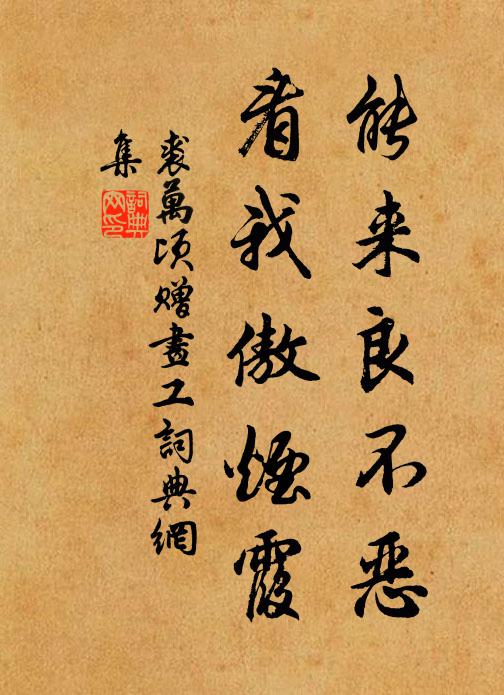 能来良不恶
看我傲煙霞
裘萬頃贈畫工詞典網
集
詞典网印